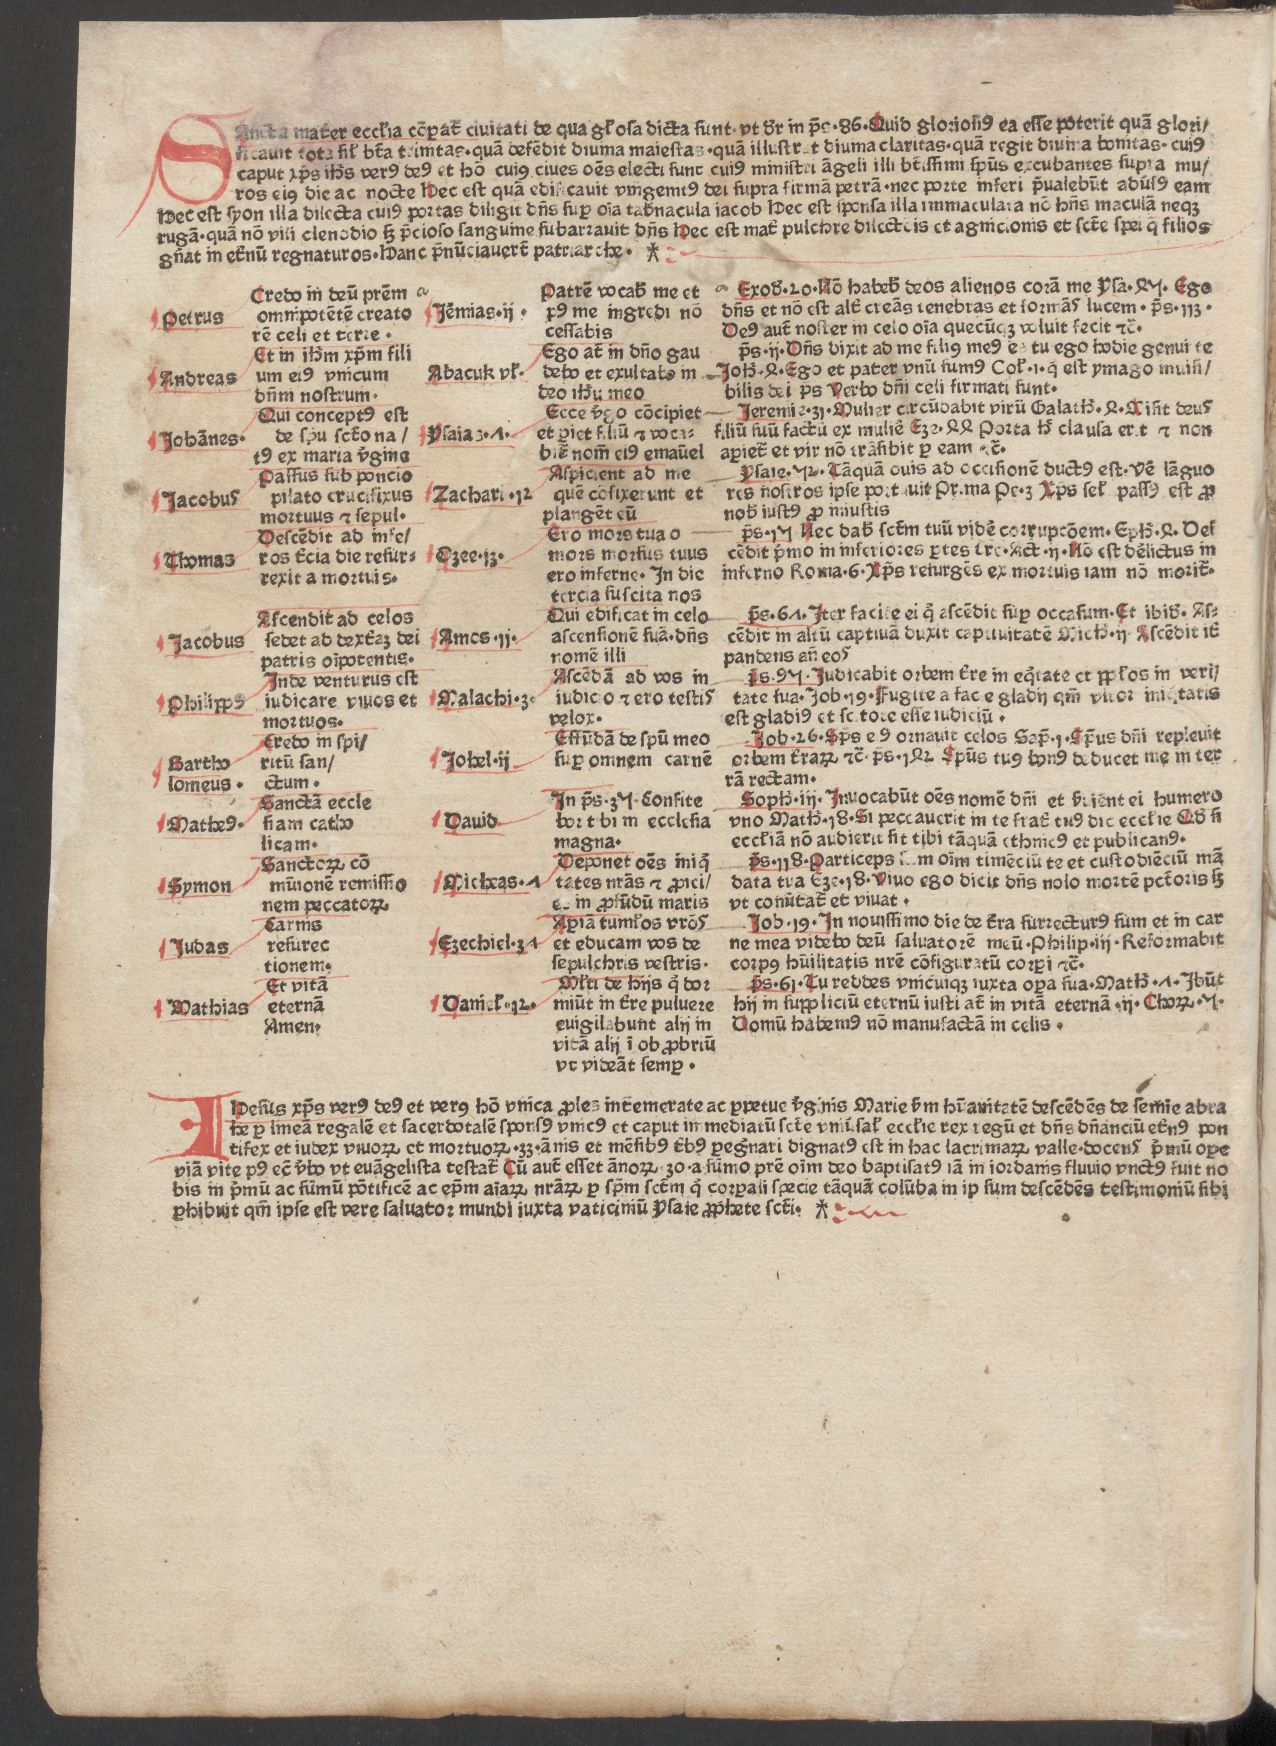 SAncta mater eccl'ia cōpat̄ ciuitati de qua gl'osa dicta sunt· vt dr̄ in ps̄·86·Quid gloriosiꝰ ea esse poterit quā glori/
ficauit tota sil' bt̄a trinitas·quā defēdit diuina maiestas·quā illustrat diuina claritas·quā regit diuina bonitas·cuiꝰ
caput xp̄s ih̄s verꝰ deꝰ et hō cuiꝰ ciues oēs electi sunt cuiꝰ ministri āgeli illi bt̄issimi sp̄us excubantes supra mu/
ros eiꝰ die ac nocte Hec est quā edificauit vnigenitꝰ dei supra firmā petrā·nec porte inferi p̄ualebūt aduꝰsꝰ eam
Hec est syon illa dilecta cuiꝰ portas diligit dn̄s sup oīa tab̄nacula iacob Hec est sponsa illa immaculata nō hn̄s maculā neqꝫ
rugā·quā nō vili clenodio sꝫ p̄cioso sanguine subarrauit dn̄s Hec est mat̄ pulchre dilectōis et agnicionis et sct̄e spei q̄ filios
gn̄at in et̄nū regnaturos·Hanc p̄nūciauerūt patriarche·
Petrus
Credo in deū prēm
omnipotētē creato
rē celi et terre·
Jēremias·ij·
Patrē vocab̄ me et
pꝰ me ingredi nō
cessabis
Exod̄·20·Nō habeb̄ deos alienos corā me Ysa·47·Ego
dn̄s et nō est alt̄ creās tenebras et formās lucem·ps̄·113·
Deꝰ aut̄ noster in celo oīa quecūqꝫ voluit fecit ⁊c̄·
Andreas
Et in ih̄m xp̄m fili
um eiꝰ vnicum
dn̄m nostrum·
Abacuk vl'·
Ego at̄ in dn̄o gau
debo et exultabo in
deo ih̄u meo
ps̄·ij·Dn̄s dixit ad me filiꝰ meꝰ es tu ego hodie genui te
Joh̄·4·Ego et pater vnū sumꝰ Col'·1·q̄ est ymago inuisi/
bilis dei ps̄ Verbo dn̄i celi firmati sunt·
Johānes·
Qui conceptꝰ est
de spū sct̄o na/
tꝰ ex maria v̄gine
Ysaia3·Λ·
Ecce v̄go cōcipiet
et pariet filiū ⁊ voca-
bit̄ nom̄ eiꝰ emaūel
Jeremie·31·Mulier circūdabit virū Galath̄·4·Misit deus
filiū suū factū ex muliē Eze·44 Porta h̄ clausa erit ⁊ non
apiet̄ et vir nō trāsibit p eam ⁊c̄·
Jacobus
Passus sub poncio
pilato crucifixus
mortuus ⁊ sepul·
Zachari·12
Aspicient ad me
quē cōfixerunt et
plangēt eū
Ysaie·53·Tāquā ouis ad occisionē ductꝰ est·Vē lāguo
res nostros ipse portauit Prima Pe·3 Xp̄s sel' passꝰ est ꝓ
nob̄ iustꝰ ꝓ iniustis
Thomas
Descēdit ad infe/
ros t̄cia die resur-
rexit a mortuis·
Ozee·13·
Ero mors tua o
mors morsus tuus
ero inferne·In die
tercia suscita nos
ps̄·15 Nec dab̄ sct̄m tuū vidē corrupcōem·Eph̄·4·Des
cēdit p̄mo in inferiores ptes tr̄e·Act̄·ij·Nō est dēlictus in
inferno Roma·6·Xp̄s resurgēs ex mortuis iam nō morit̄·
Jacobus
Ascendit ad celos
sedet ad dext̄aꝫ dei
patris oīpotentis·
Amos·ij·
Qui edificat in celo
ascensionē suā·dn̄s
nomē illi
ps̄·6Λ·Iter facite ei q̄ ascēdit sup occasum·Et ibid̄·As-
cēdit in altū captiuā duxit captiuitatē Mich̄·ij·Ascēdit it̄
pandens an̄ eos
Philippꝰ
Inde venturus est
iudicare viuos et
mortuos·
Malachi·3·
Ascēdā ad vos in
iudicio ⁊ ero testis
velox·
ps̄·95·Judicabit orbem t̄re in eq̄tate et ppl'os in veri/
tate sua·Job·19·Fugite a facie gladij qm̄ vltor iniq̄tatis
est gladiꝰ et scitote esse iudiciū·
Bartho
lomeus·
Credo in spi/
ritū san/
ctum·
Johel·ij
Effūdā de spū meo
sup omnem carnē
Job·26·Sp̄s eꝰ ornauit celos Sap̄·1·Sp̄us dn̄i repleuit
orbem t̄rarꝝ ⁊c̄ ps̄·142 Sp̄us tuꝰ bonꝰ deducet me in ter
rā rectam·
Matheꝰ·
Sanctā eccle
siam catho
licam·
Dauid
In ps̄·35·Confite
bor tibi in ecclesia
magna·
Soph̄·iij·Inuocabūt oēs nomē dn̄i et v̄uiēnt ei humero
vno Math̄·18·Si peccauerit in te frat̄ tuꝰ dic eccl'ie Qd̄ si
eccl'iā nō audierit sit tibi tāquā ethnicꝰ et publicanꝰ·
Symon
Sanctorꝝ cō
mūionē remissio
nem peccatorꝝ
Micheas·Λ
Deponet oēs īniq̄
tates nr̄as ⁊ ꝓici/
et in ꝓfūdū maris
ps̄·118·Particeps sum oīm timēciū te et custodiēciū mā
data tua Eze·18·Viuo ego dicit dn̄s nolo mortē pct̄oris sꝫ
vt conūtat̄ et viuat·
Judas
Carnis
resurec
tionem·
Ezechiel·3Λ
Apiā tumlos vrōs
et educam vos de
sepulchris vestris·
Job·19·In nouissimo die de t̄ra surrecturꝰ sum et in car
ne mea videbo deū saluatorē meū·Philip·iij·Reformabit
corpꝰ hūilitatis nr̄e cōfiguratū corpi ⁊c̄·
Mathias
Et vitā
eternā
Amen·
Daniel'·12·
Ml'ti de hijs q̄ dor
miūt in t̄re puluere
euigilabunt alij in
vitā alij ī obꝓbriū
vt videāt semp·
ps̄·61·Tu reddes vnicuiqꝫ iuxta opa sua·Math̄·Λ·Ibūt
hij in suppliciū eternū iusti at̄ in vitā eternā·ij·Chorꝝ·5·
Domū habemꝰ nō manufactā in celis·
IHesus xp̄s verꝰ deꝰ et verꝰ hō vnica ꝓles intemerate ac ppetue v̄ginis Marie v̄m hūanitatē descēdēs de semīe abra
he p lineā regalē et sacerdotalē sponsꝰ vnicꝰ et caput in mediatū sct̄e vniūsal' eccl'ie rex regū et dn̄s dn̄anciū et̄nꝰ pon
tifex et iudex viuorꝝ et mortuorꝝ·33·ānis et mēsibꝰ t̄bꝰ pegnari dignatꝰ est in hac lacrimarꝝ valle·docens p̄mū ope
viā vite pꝰ eē v̄bo vt euāgelista testat̄ Cū aut̄ esset ānorꝝ 30·a sūmo prē oīm deo baptisatꝰ iā in iordanis fluuio vnctꝰ fuit no
bis in p̄mū ac sūmū pōtificē ac ep̄m aīarꝝ nrārꝝ p sp̄m sct̄m q̄ corpali specie tāquā colūba in ipsum descēdēs testimoniū sibi
phibuit qm̄ ipse est vere saluator mundi iuxta vaticiniū Ysaie ꝓphete sct̄i·